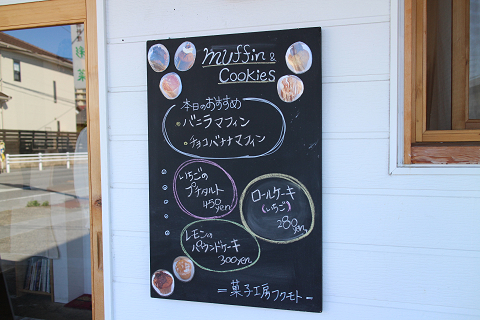 muffin &
Cookies
本日のおすすめ
・バニラマフィン
・チョコバナナマフィン
いちごの
プチタルト
450
yen
ロールケーキ
(いちご)
280
yen
レモンの
パウンドケーキ
300yen
－菓子工房フクモト－